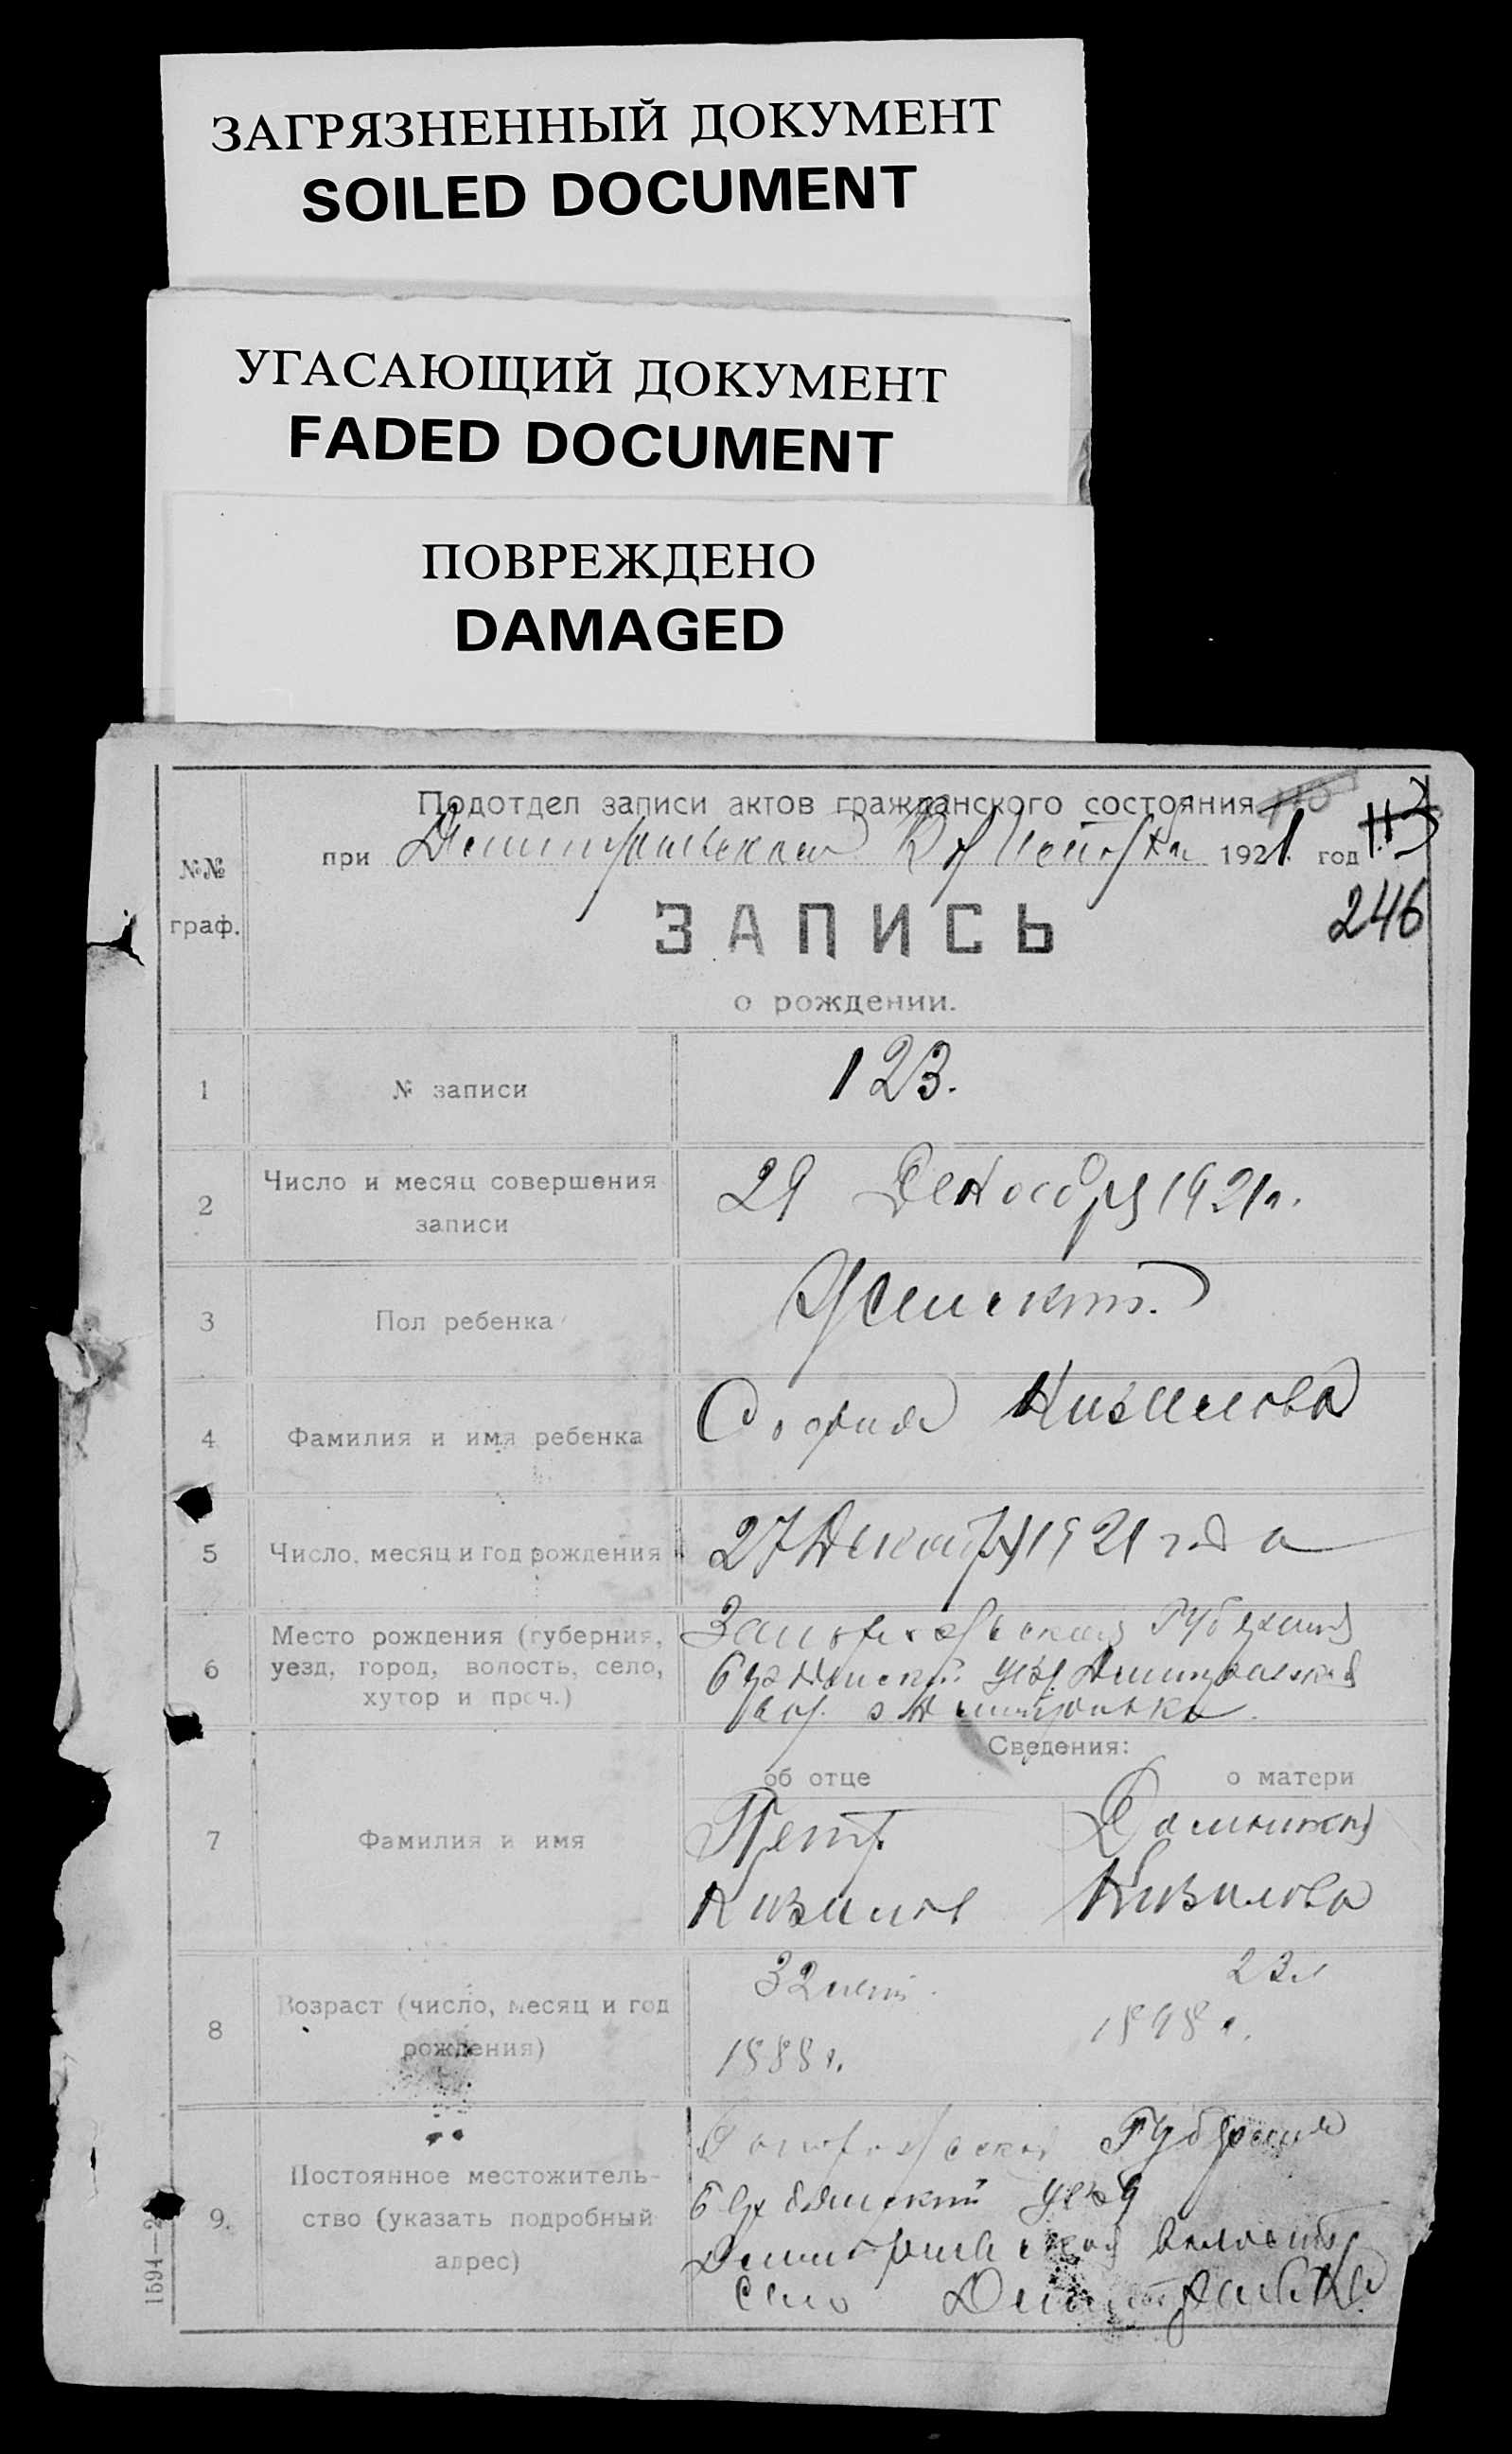 ЗАГРЯЗНЕННЫЙ ДОКУМЕНТ
SOILED DOCUMENT
УГАСАЮЩИЙ ДОКУМЕНТ
FADED DOCUMENT
ПОВРЕЖДЕНО
DAMAGED
Подотдел записи актов гражданского состояния
113
№№ граф.
при 1921 год
246
ЗАПИСЬ
о рождении.
1 № записи 123.
2 Число и месяц совершения записи 29 Декабря 1921 г.
3 Пол ребенка Женский
4 Фамилия и имя ребенка София Кизилова
5 Число, месяц и год рождения 27 Декабря 1921 года
6 Место рождения (губерния, уезд, город, волость, село, хутор и проч.)
Запорожская Губерния
Бердянский уезд
Сведения:
об отце о матери
7 Фамилия и имя
Петр
Кизилов Кизилова
8 Возраст (число, месяц и год рождения)
32 лет 23 л
1888 г. 1898 г.
9. Постоянное местожитель-
ство (указать подробный
адрес)
Запорожская Губерния
Бердянский уезд
волость
Село Дмитровка
1594—2